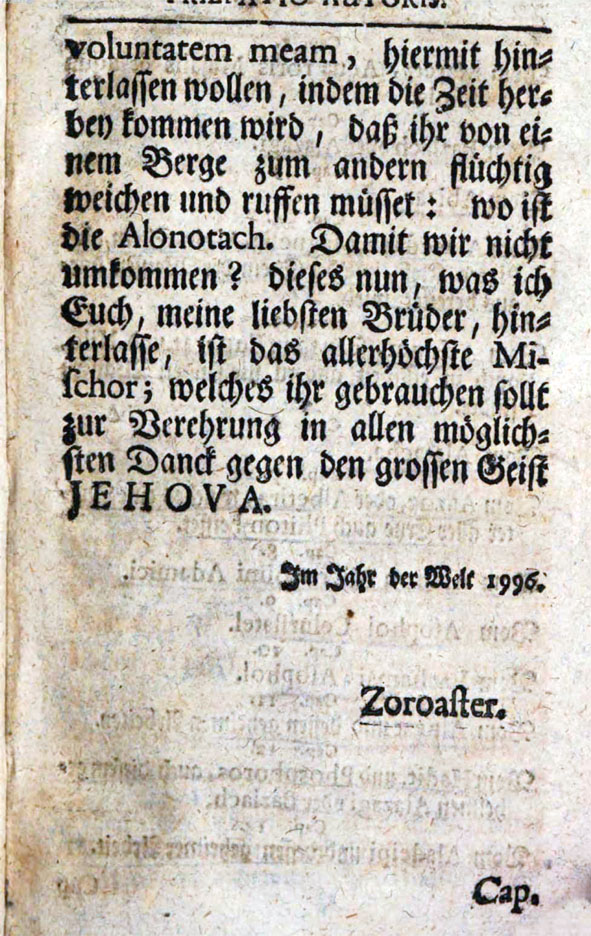 PRÆFATIO AUTORIS.
voluntatem meam, hiermit hin-
terlassen wollen, indem die Zeit her-
bey kommen wird, daß ihr von ei-
nem Berge zum andern flüchtig
weichen und ruffen müsset: wo ist
die Alonotach. Damit wir nicht
umkommen? dieses nun, was ich
Euch, meine liebsten Brüder, hin-
terlasse, ist das allerhöchste Mi-
schor; welches ihr gebrauchen sollt
zur Verehrung in allen möglich-
sten Danck gegen den grossen Geist
JEHOVA.
Im Jahr der Welt 1996.
Zoroaster.
Cap.